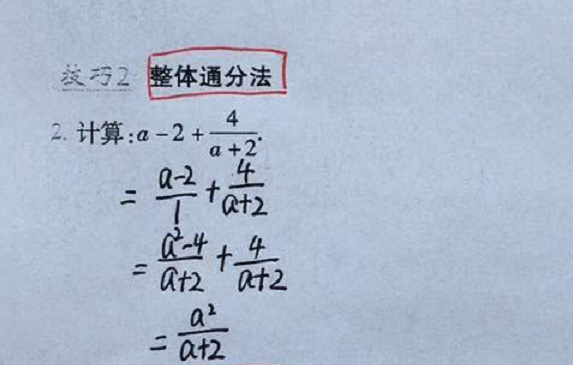 技巧2 整体通分法
2. 计算:a-2+\frac{4}{a+2}.
=\frac{a-2}{1}+\frac{4}{a+2}
=\frac{a²-4}{a+2}+\frac{4}{a+2}
=\frac{a²}{a+2}